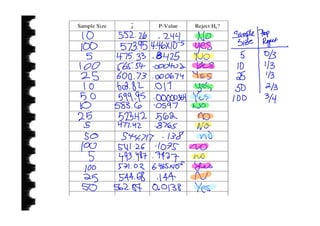 Sample Size x̄ P-Value Reject H₀?
10 552.26 .244 No
100 573.95 4.46x10⁻⁵ yes
5 475.33 .8425 No
100 566.54 .000402
25 600.73 .000674 Yes
10 .019 Yes
50 599.95 .0000084 Yes
10 583.6 .0597 No
25 523.42 .562 no
5 477.42 .8765 No
50 .138 no
100 541.26 .1075 no
5 493.987 .7927 no
100 571.02
25 544.68 .144 No
50 562.87 0.0138 Yes
Sample Size Prop Reject
5 0/3
10 1/3
25 1/3
50 2/3
100 3/4